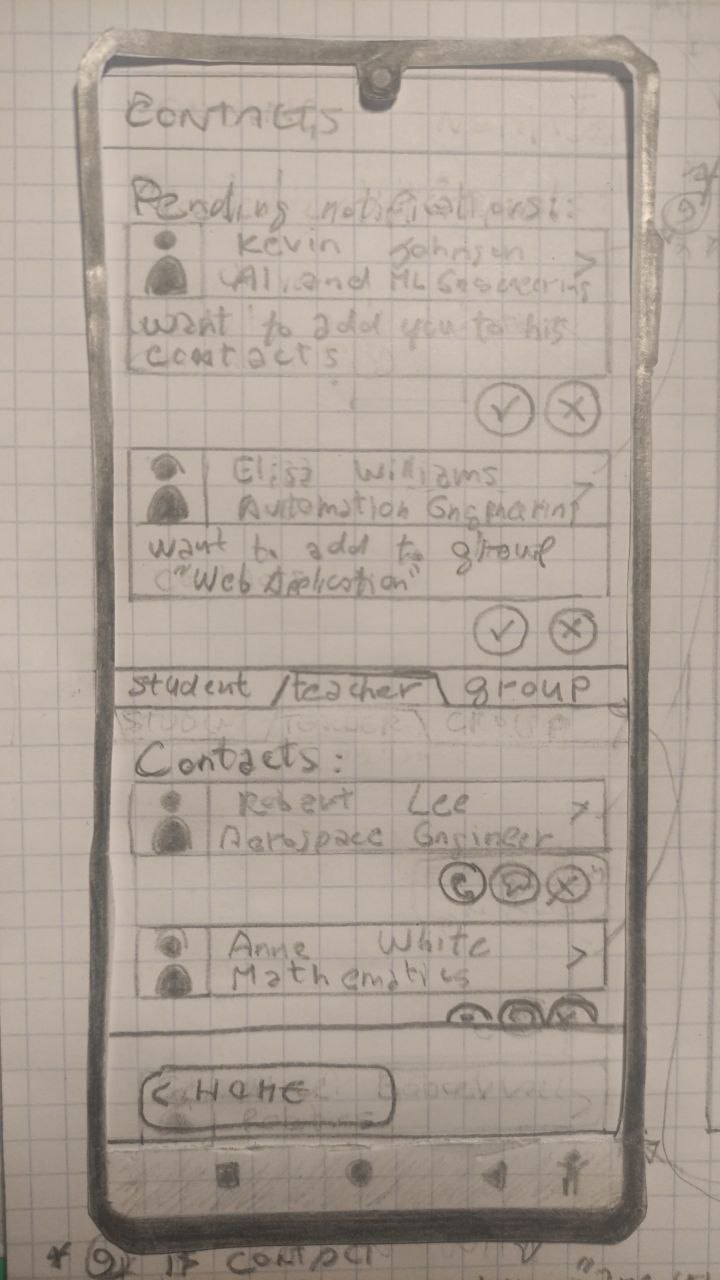 CONTACTS
Pending notifications:
Kevin Johnson >
AI and ML Engineering
want to add you to his
contacts
Elisa Williams >
Automation Engineering
want to add to group
"Web Application"
student / teacher \ group
Contacts:
Robert Lee >
Aerospace Engineer
Anne White >
Mathematics
< HOME
* 9* if contact